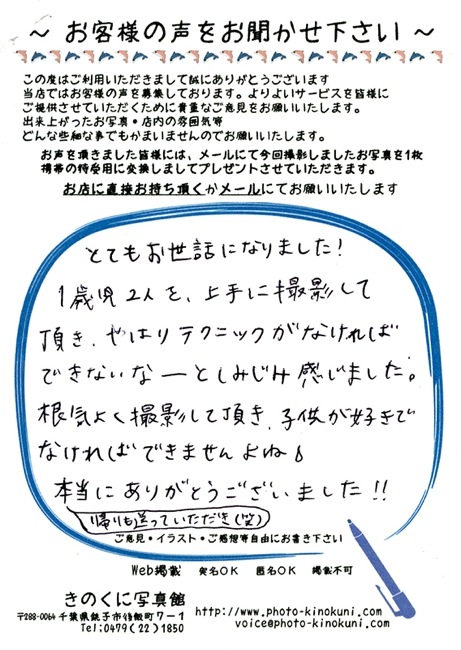 ～ お客様の声をお聞かせ下さい ～
この度はご利用いただきまして誠にありがとうございます
当店ではお客様の声を募集しております。よりよいサービスを皆様に
ご提供させていただくために貴重なご意見をお願いいたします。
出来上がったお写真・店内の雰囲気等
どんな些細な事でもかまいませんのでお願いいたします。
お声を頂きました皆様には、メールにて今回撮影しましたお写真を1枚
携帯の待受用に交換しましてプレゼントさせていただきます。
お店に直接お持ち頂くかメールにてお願いいたします
とてもお世話になりました！
1歳児2人を、上手に撮影して
頂き、やはりテクニックがなければ
できないなーとしみじみ感じました。
根気よく撮影して頂き、子供が好きで
なければできませんよね♪
本当にありがとうございました！！
帰りも送っていただき（笑）
ご意見・イラスト・ご感想等自由にお書き下さい
Web掲載 実名OK 匿名OK 掲載不可
きのくに写真館
〒288-0064 千葉県銚子市 町7－1
Tel:0479(22)1850
http://www.photo-kinokuni.com/
voice@photo-kinokuni.com/